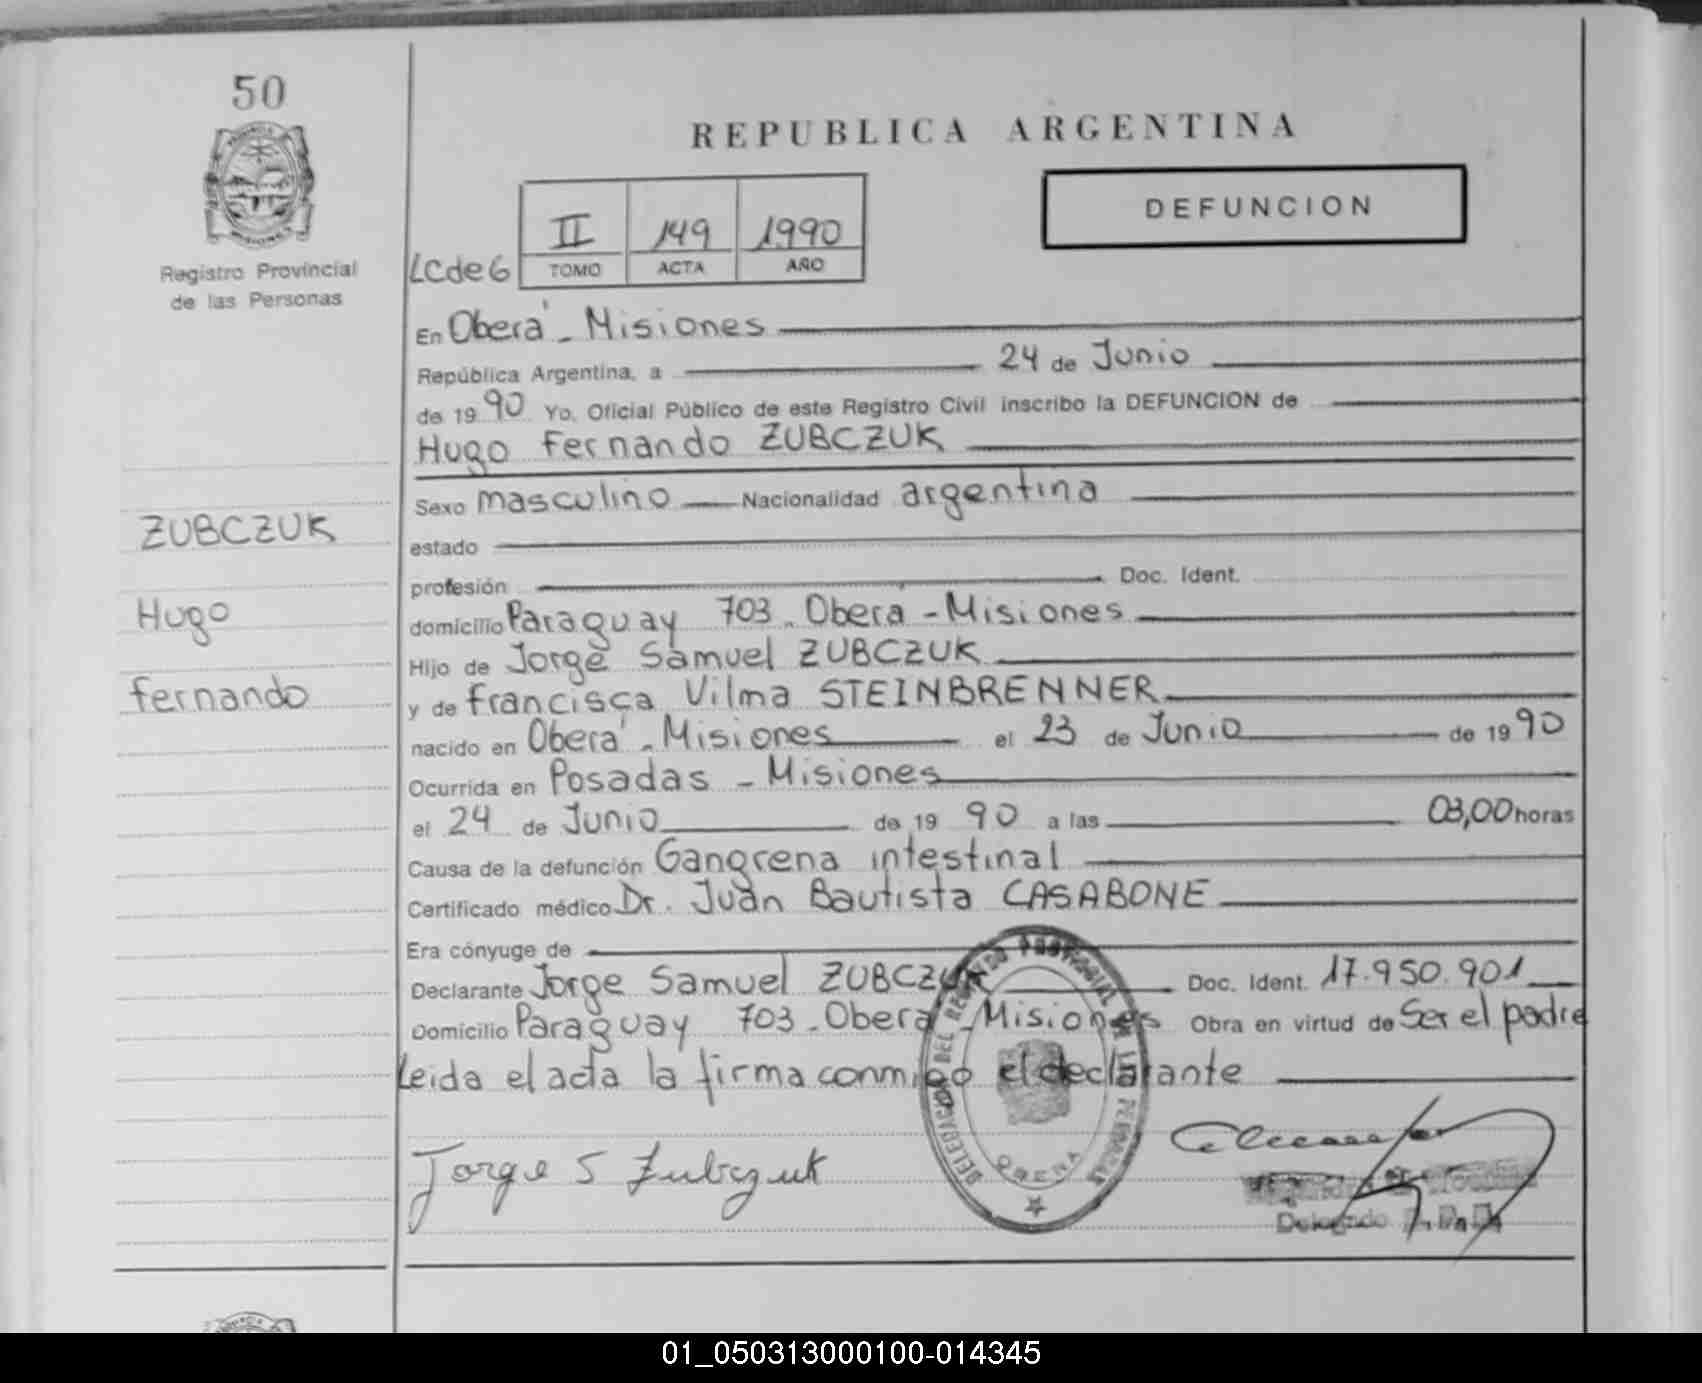 50
Registro Provincial
de las Personas
ZUBCZUK
Hugo
Fernando
REPUBLICA ARGENTINA
DEFUNCION
LCde6
II 149 1990
TOMO ACTA AÑO
En Oberá - Misiones
República Argentina, a 24 de Junio
de 1990 Yo, Oficial Público de este Registro Civil inscribo la DEFUNCION de
Hugo Fernando ZUBCZUK
Sexo masculino Nacionalidad argentina
estado
profesión Doc. Ident.
domicilio Paraguay 703 - Oberá - Misiones
Hijo de Jorge Samuel ZUBCZUK
y de Francisca Vilma STEINBRENNER
nacido en Oberá - Misiones el 23 de Junio de 1990
Ocurrida en Posadas - Misiones
el 24 de Junio de 1990 a las 03,00 horas
Causa de la defunción Gangrena intestinal
Certificado médico Dr. Juan Bautista CASABONE
Era cónyuge de
Declarante Jorge Samuel ZUBCZUK Doc. Ident. 17.950.901
Domicilio Paraguay 703 - Oberá - Misiones Obra en virtud de Ser el padre
Leida el acta la firma conmigo el declarante
DELEGACION DEL REGISTRO PROVINCIAL DE LAS PERSONAS
OBERA
Jorge S Zubczuk
Delegado
01_050313000100-014345